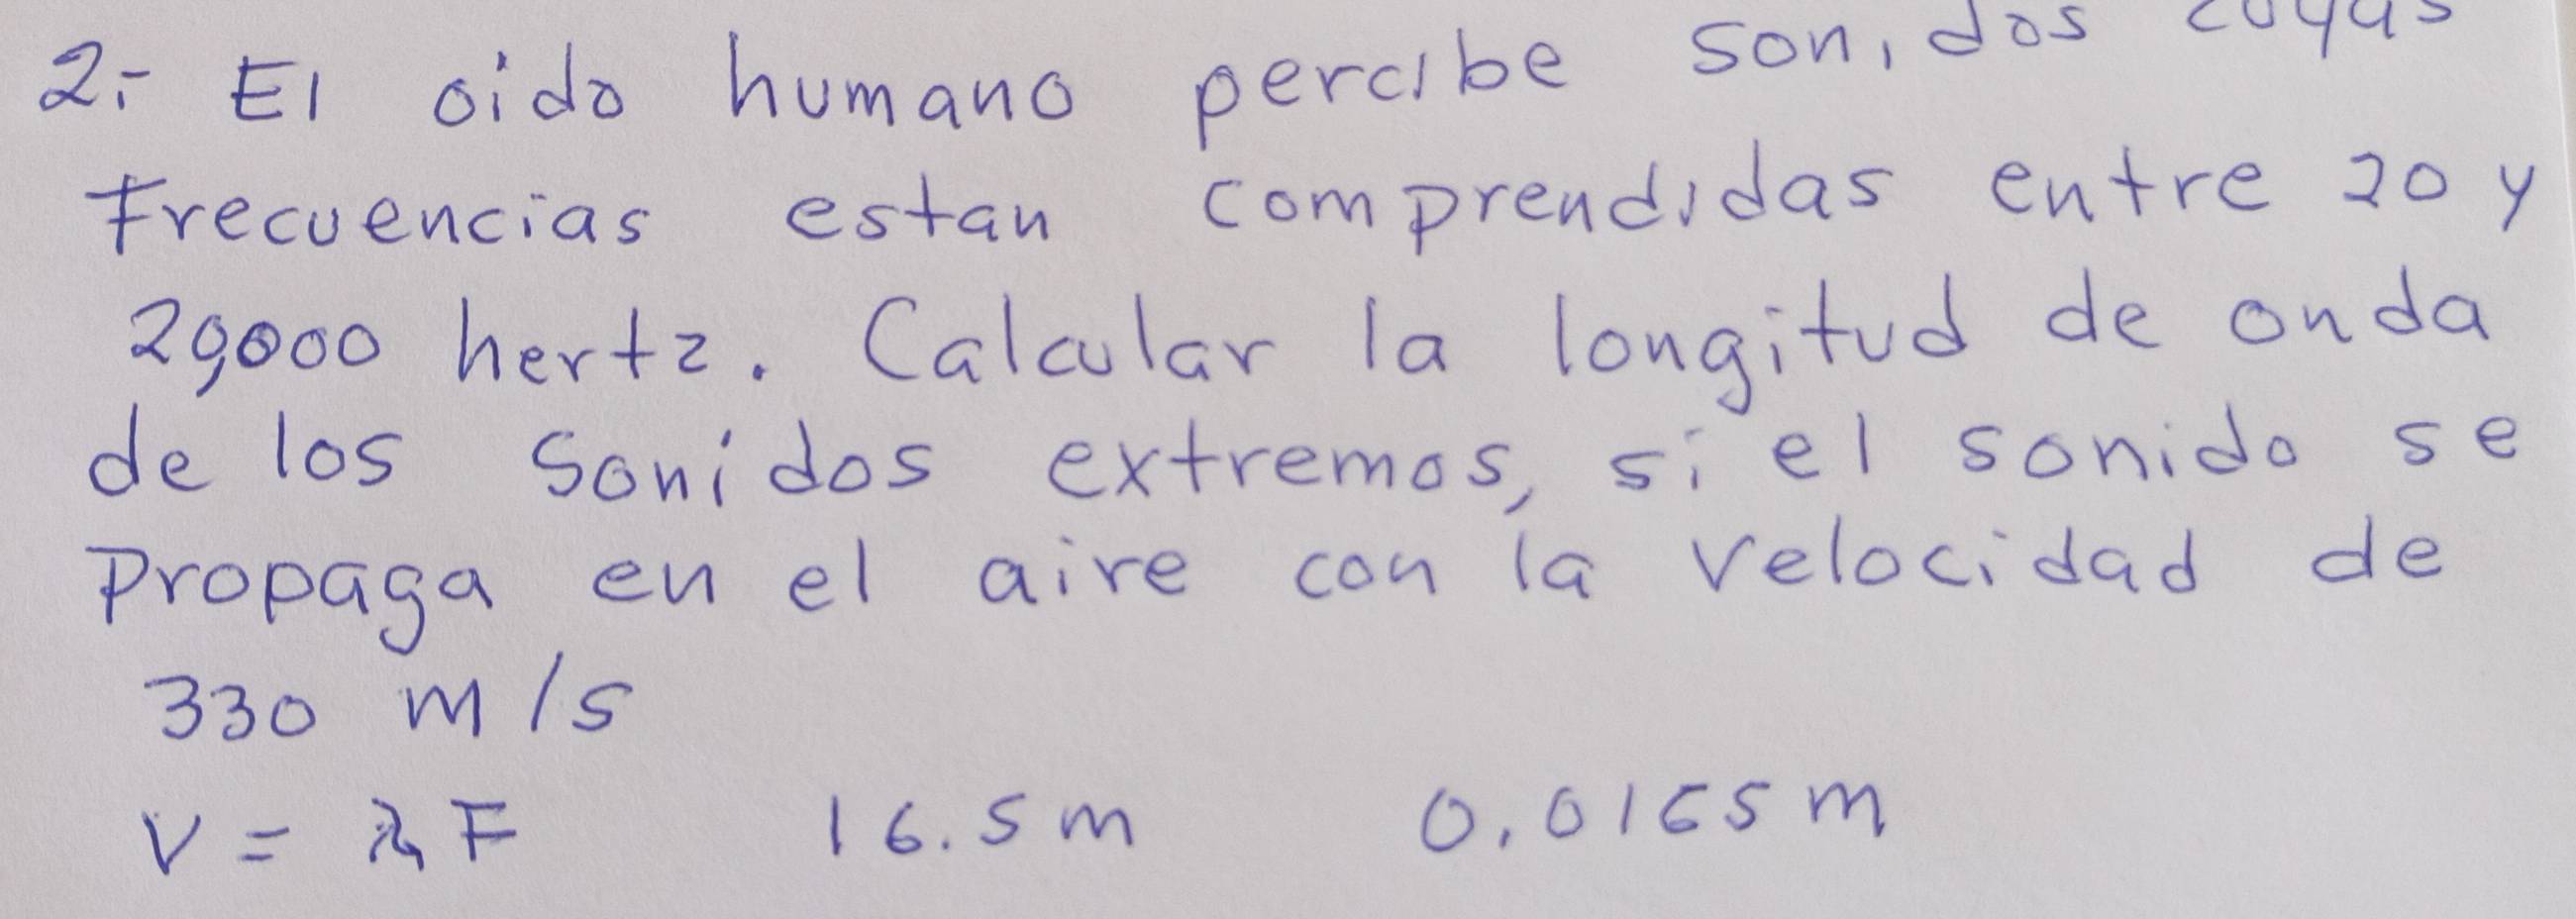 2.- El oido humano percibe sonidos cuyas
Frecuencias estan comprendidas entre 20 y
20,000 hertz. Calcular la longitud de onda
de los sonidos extremos, si el sonido se
Propaga en el aire con la velocidad de
330 m/s
V = λF 16.5m 0.0165m